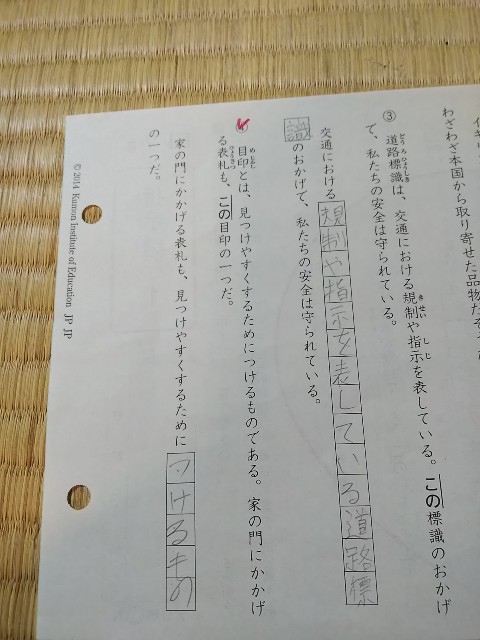 わざわざ本国から取り寄せた品物だ
③ 道路標識は、交通における規制や指示を表している。この標識のおかげ
で、私たちの安全は守られている。
交通における規制や指示を表している道路標
識のおかげで、私たちの安全は守られている。
④ 目印とは、見つけやすくするためにつけるものである。家の門にかかげ
る表札も、この目印の一つだ。
家の門にかかげる表札も、見つけやすくするためにつけるもの
の一つだ。
© 2014 Kumon Institute of Education JP JP